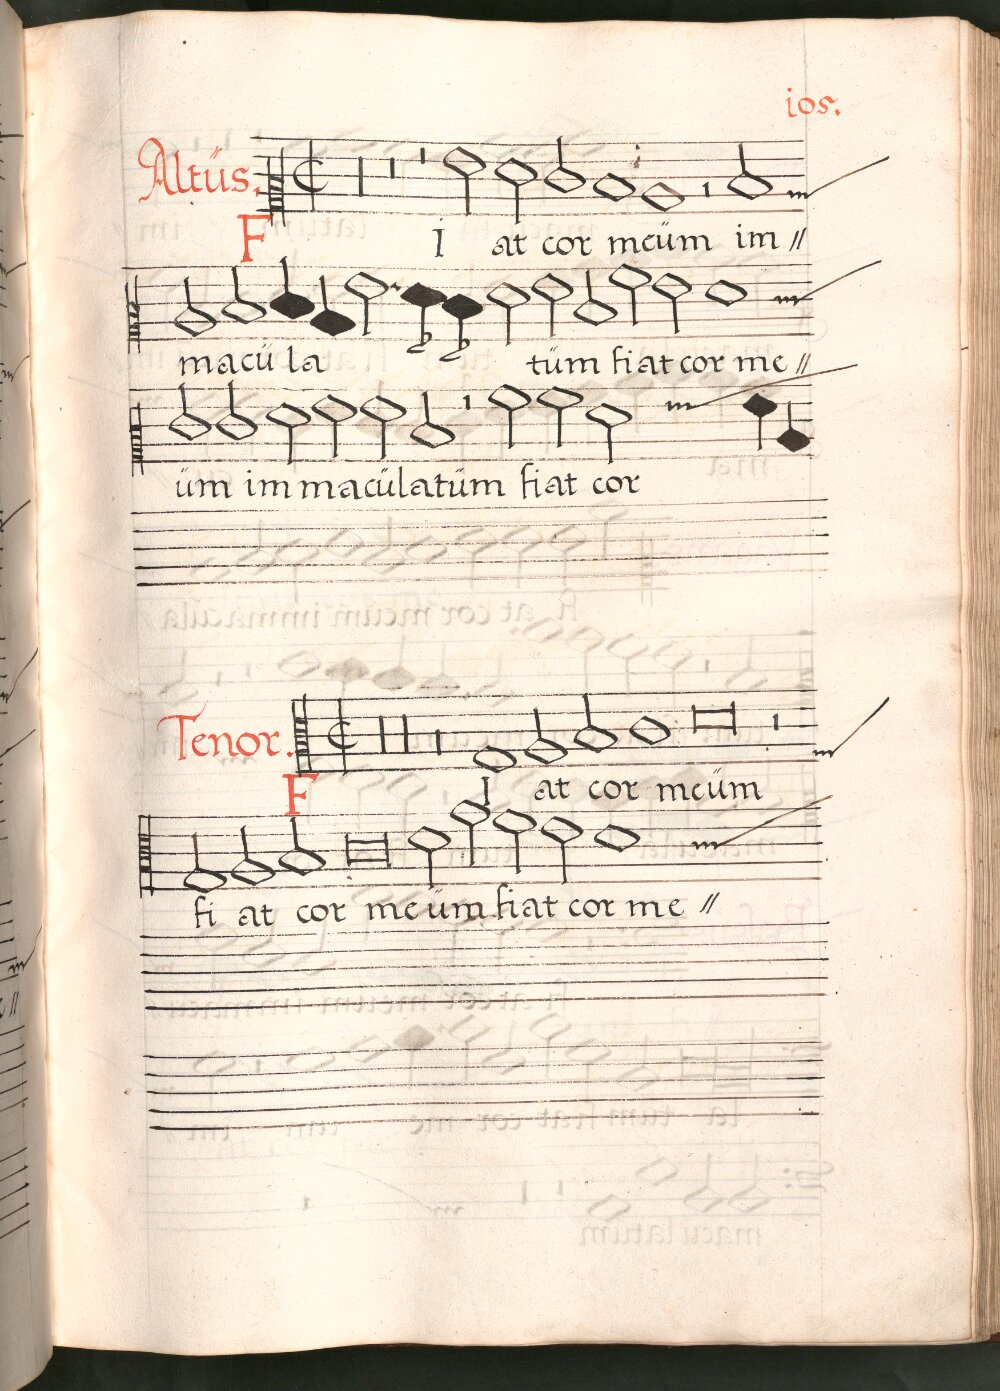 ios.
Altüs.
FI at cor meüm im //
macü la tüm fiat cor me //
üm immacülatüm fiat cor
Tenor.
FI at cor meüm
fi at cor meüm fiat cor me //